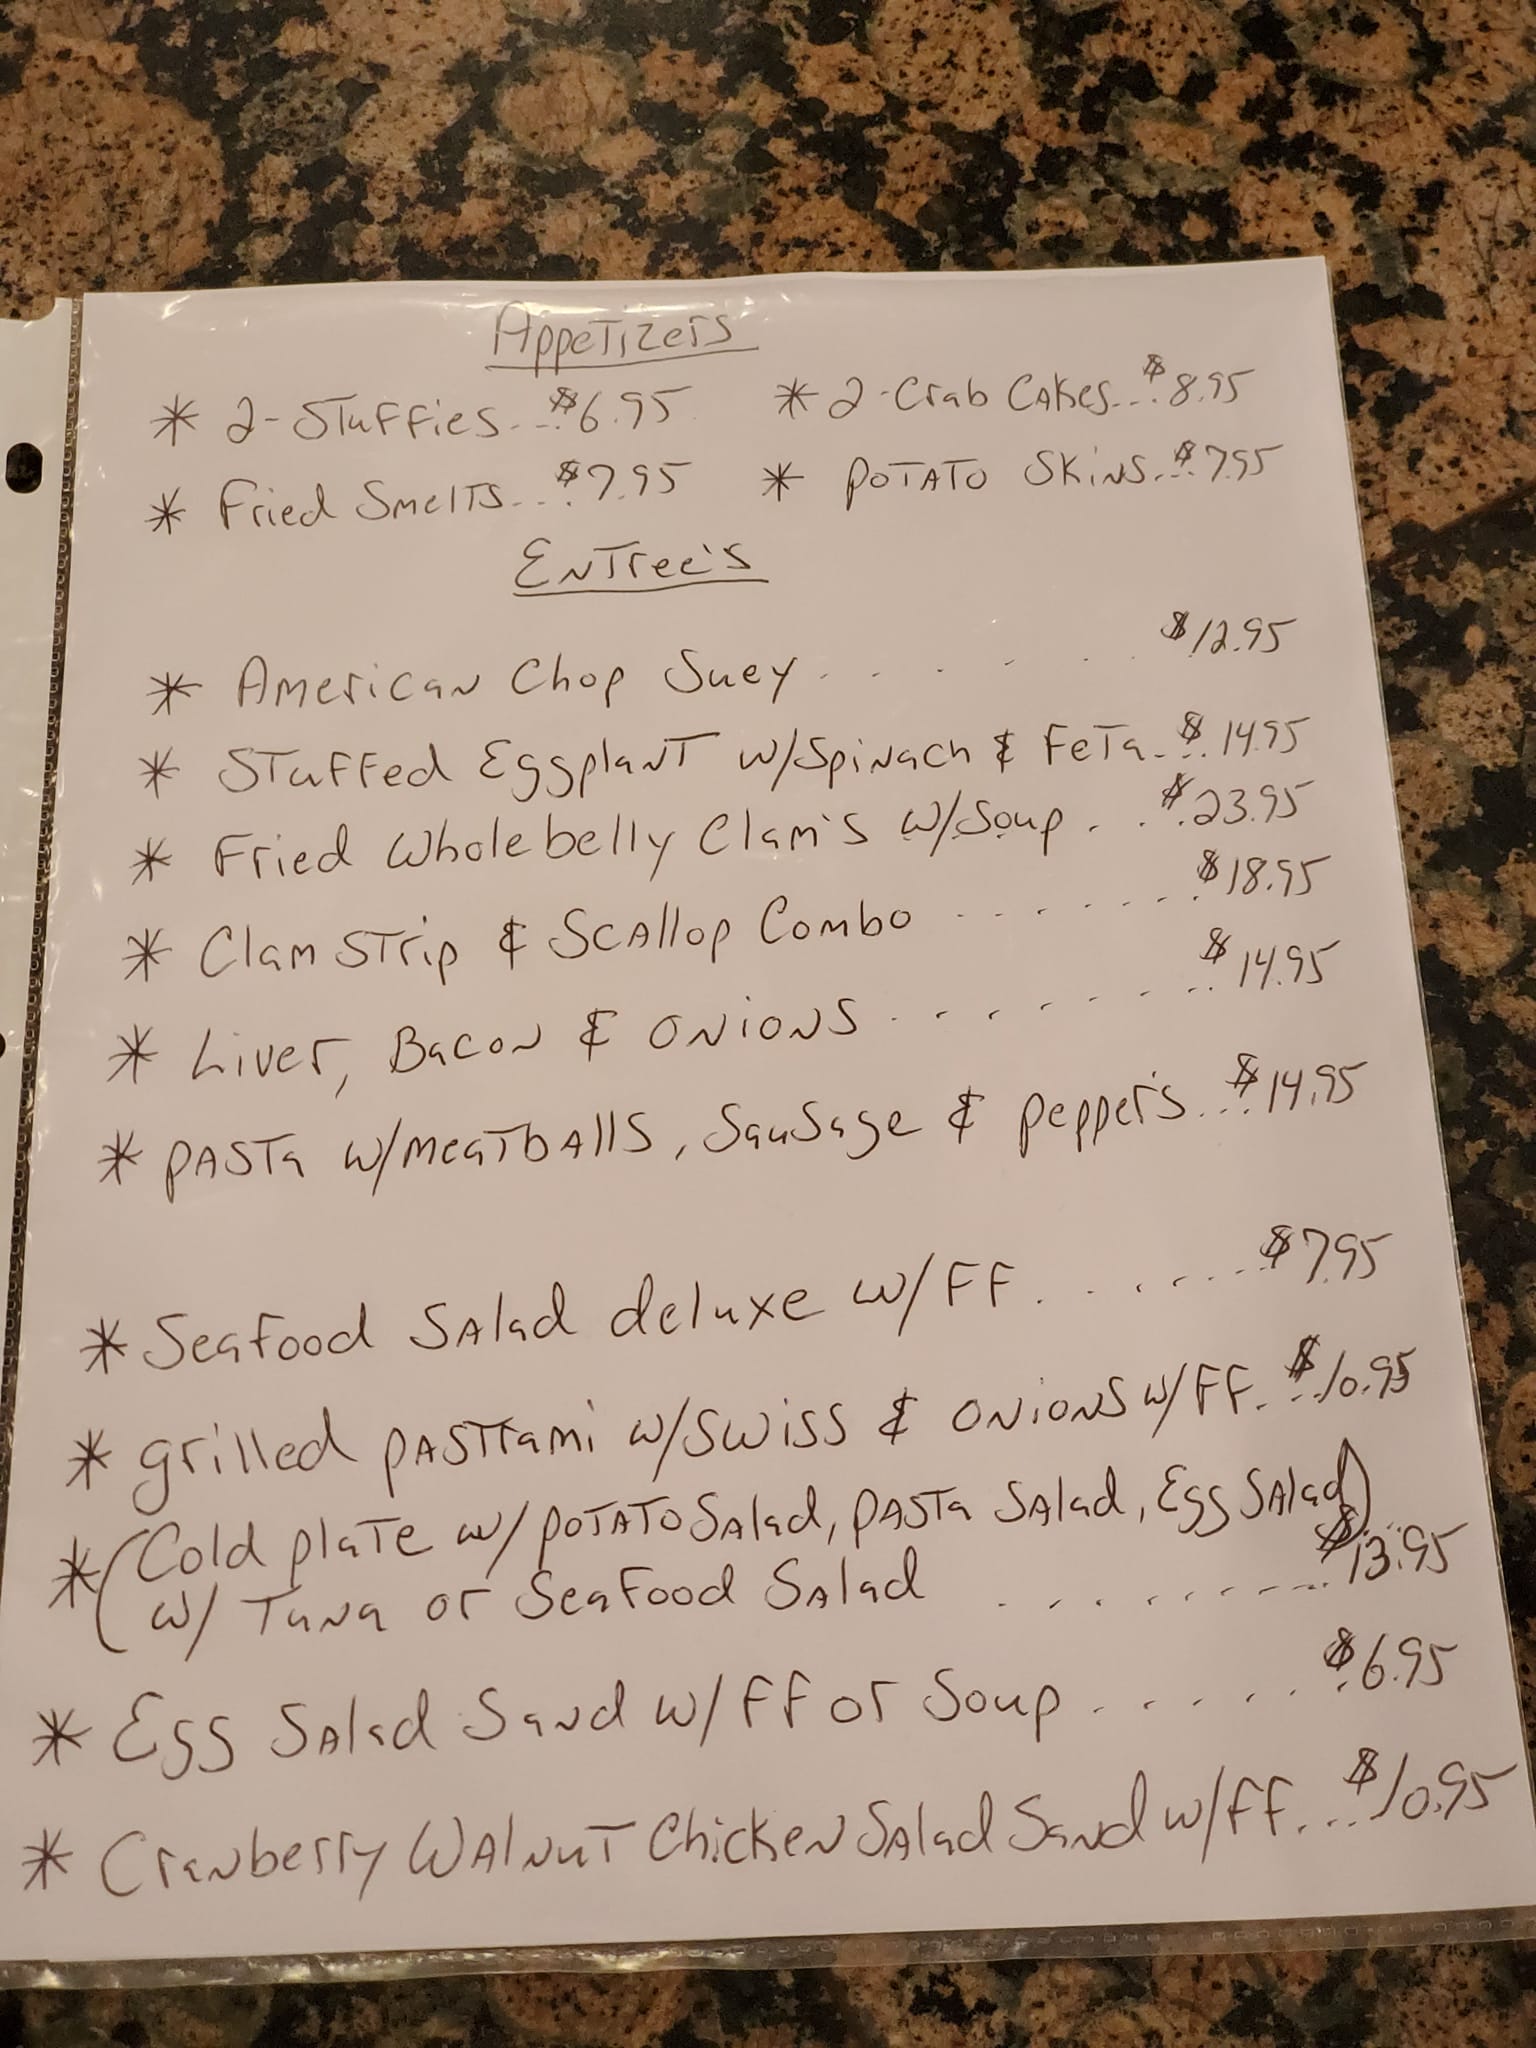 Appetizers
* 2-Stuffies...$6.95 * 2-Crab Cakes...$8.95
* Fried Smelts...$7.95 * Potato Skins...$7.95
Entree's
* American Chop Suey.....$12.95
* Stuffed Eggplant w/Spinach & Feta...$14.95
* Fried Whole belly Clam's w/Soup...$23.95
* Clam Strip & Scallop Combo.......$18.95
* Liver, Bacon & Onions........$14.95
* Pasta w/Meatballs, Sausage & Pepper's...$14.95
* Seafood Salad deluxe w/FF.......$7.95
* grilled pastrami w/Swiss & Onions w/FF...$10.95
* (Cold plate w/ potato Salad, pasta Salad, Egg Salad)
w/ Tuna or Seafood Salad.........$13.95
* Egg Salad Sand w/FF or Soup......$6.95
* Cranberry Walnut Chicken Salad Sand w/FF...$10.95